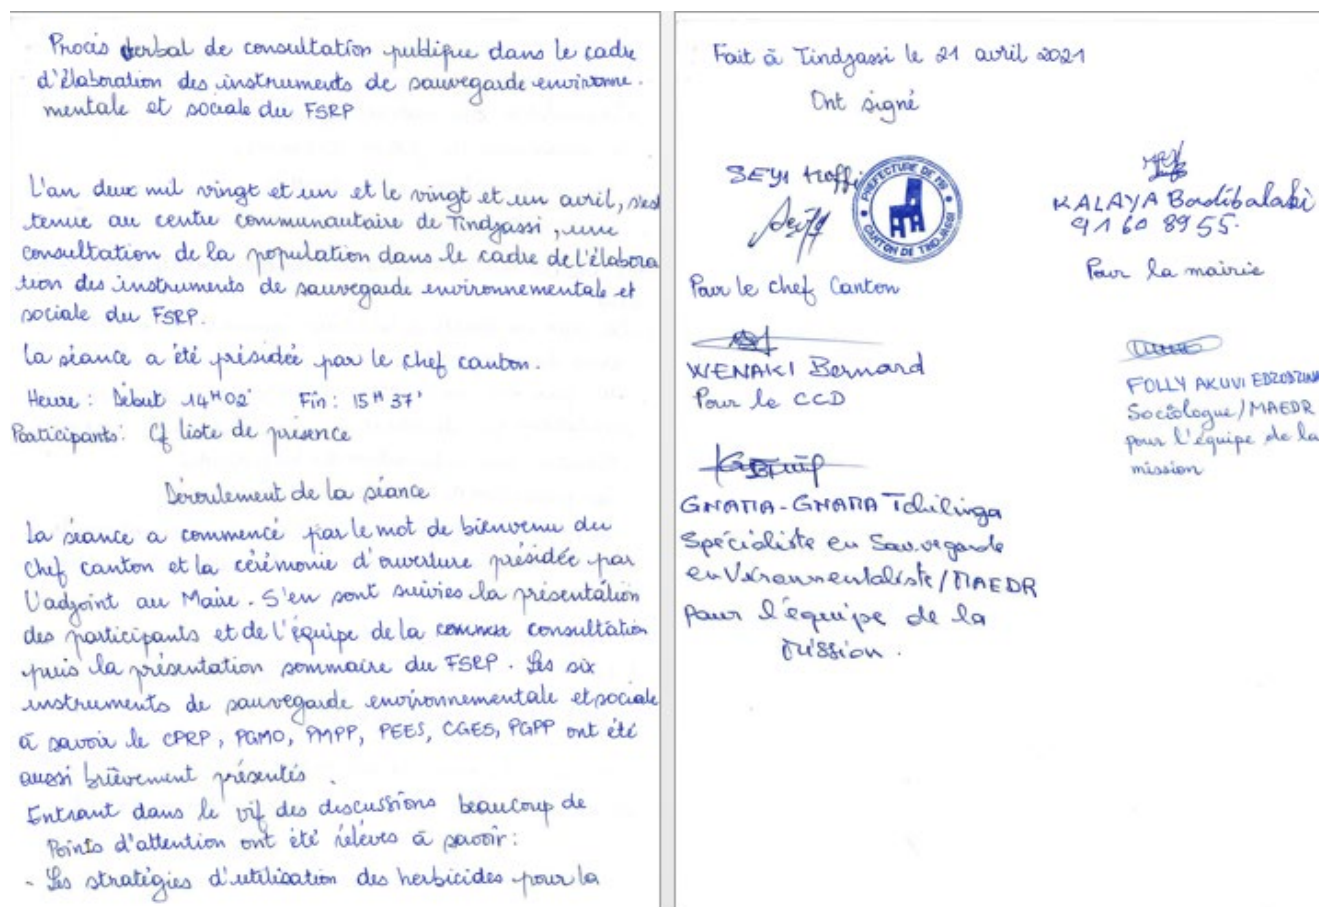 Procès verbal de consultation publique dans le cadre
d'élaboration des instruments de sauvegarde environne-
mentale et sociale du FSRP
L'an deux mil vingt et un et le vingt et un avril, s'est
tenue au centre communautaire de Tindjassi, une
consultation de la population dans le cadre de l'élabora
tion des instruments de sauvegarde environnementale et
sociale du FSRP.
La séance a été présidée par le chef canton.
Heure : Début 14H02' Fin : 15H37'
Participants : Cf liste de présence
Déroulement de la séance
La séance a commencé par le mot de bienvenu du
chef canton et la cérémonie d'ouverture présidée par
l'adjoint au Maire. S'en sont suivies la présentation
des participants et de l'équipe de la consultation
puis la présentation sommaire du FSRP. Les six
instruments de sauvegarde environnementale et sociale
à savoir le CPRP, PGMO, PMPP, PEES, CGES, PGPP ont été
aussi brièvement présentés.
Entrant dans le vif des discussions beaucoup de
Points d'attention ont été rélévés à savoir :
- Les stratégies d'utilisation des herbicides pour la
Fait à Tindjassi le 21 avril 2021
Ont signé
SEYI Koffi
PREFECTURE DE
CANTON DE TINDJASSI
Pour le chef Canton
KALAYA Bodibalaki
91 60 89 55.
Pour la mairie
WENAKI Bernard
Pour le CCD
FOLLY AKUVI
Sociologue/MAEDR
pour l'équipe de la
mission
GNAMA-GNAMA Tchilinga
Spécialiste en Sauvegarde
environnementaliste/MAEDR
Pour l'équipe de la
mission.